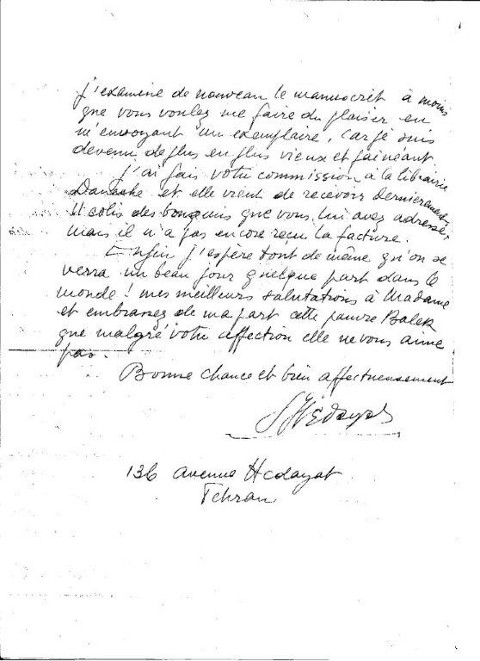 J'examine de nouveau le manuscrit à moins
que vous voulez me faire du plaisir en
m'envoyant un exemplaire, car je suis
devenu de plus en plus vieux et fainéant.
J'ai fais votre commission à la librairie
Danache et elle vient de recevoir dernièrement
11 colis des bouquins que vous lui avez adressés,
mais il n'a pas encore reçu la facture.
Enfin j'espère tout de même qu'on se
verra un beau jour quelque part dans le
monde! mes meilleurs salutations à Madame
et embrassez de ma part cette pauvre
que malgré votre affection elle ne vous aime
pas.
Bonne chance et bien affectueusement
S. Hedayat
136 avenue Hedayat
Tehran